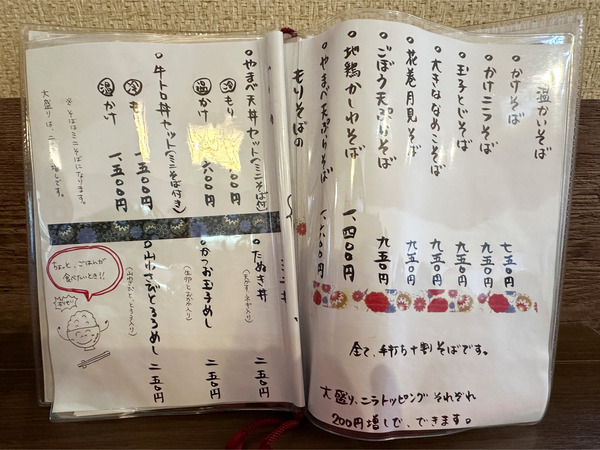 温かいそば
かけそば 七五〇円
かけニラそば 九五〇円
玉子とじそば 九五〇円
大きななめこそば 九五〇円
花巻月見そば 九五〇円
ごぼう天ぷらそば 九五〇円
地鶏かしわそば 一、四〇〇円
やまべ天ぷらそば 一、六〇〇円
全て、手打ち十割そばです。
大盛り、ニラトッピング それぞれ
200円増しで、できます。
もりそばの
やまべ天丼セット(ミニそば付)
冷 もり
温 かけ 六〇〇円
牛トロ丼セット(ミニそば付き)
冷 もり 一、五〇〇円
温 かけ 一、五〇〇円
※そばはミニそばになります。
大盛りは、二 増しです。
たぬき丼 二五〇円
かつお玉子めし 二五〇円
(生卵とおかか入り)
山わさびとろろめし 二五〇円
ちょっと、ごはんが
食べたいとき!!